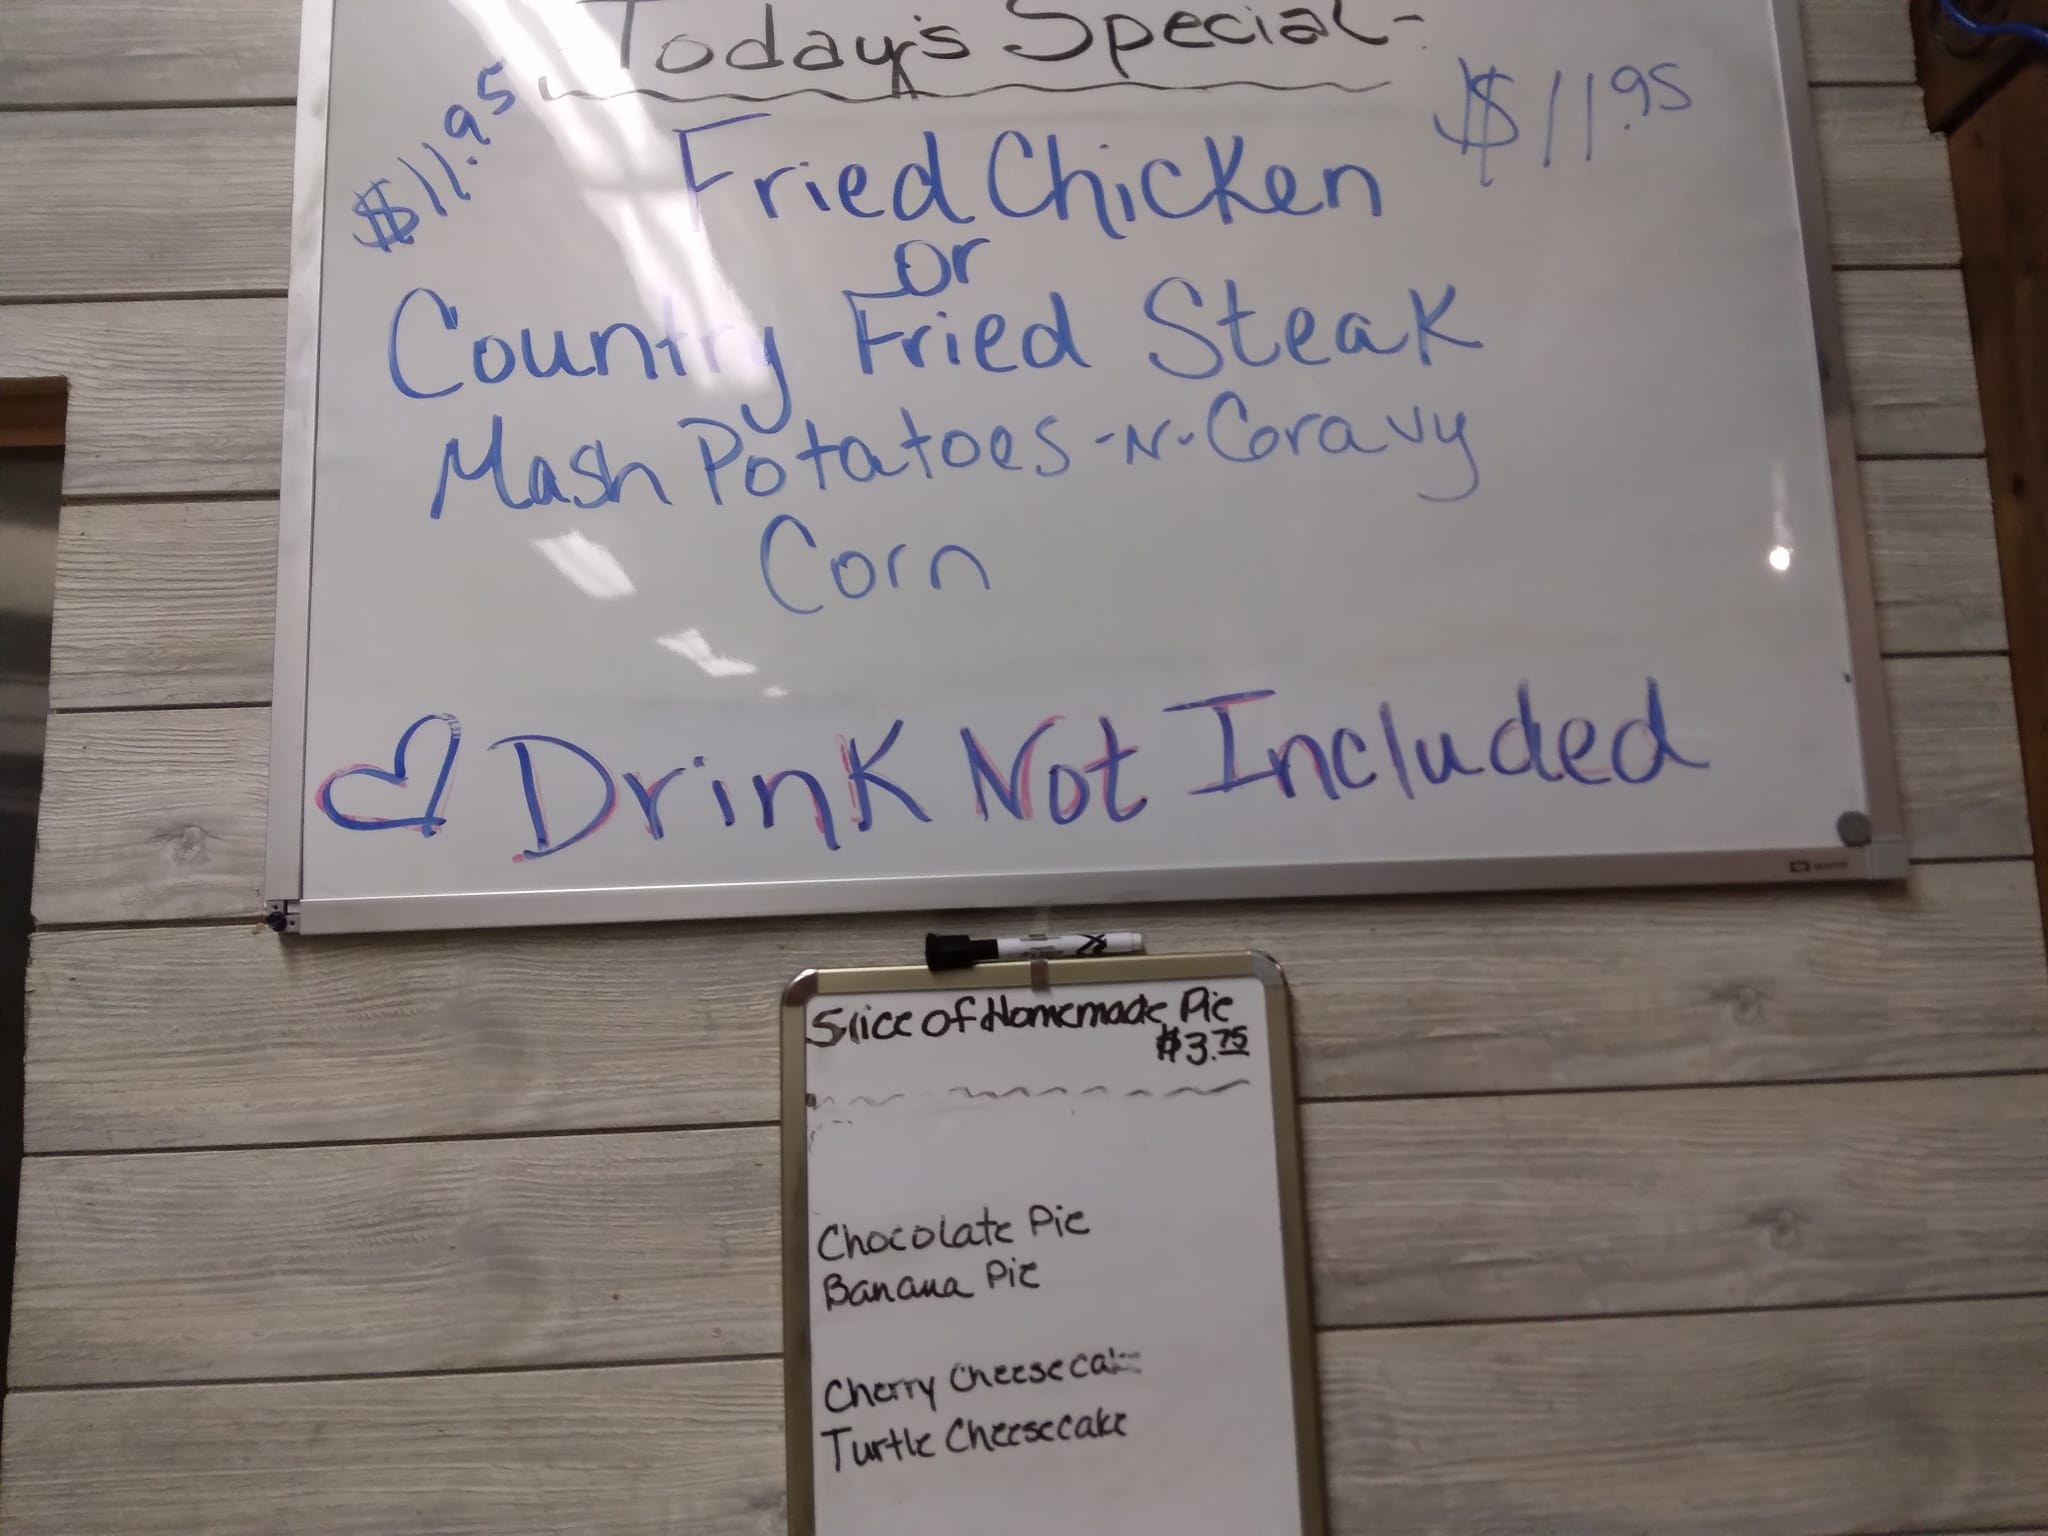 Today's Special-
$11.95
$11.95
Fried Chicken
or
Country Fried Steak
Mash Potatoes -N- Gravy
Corn
Drink Not Included
Slice of Homemade Pie
$3.75
Chocolate Pie
Banana Pie
Cherry Cheesecake
Turtle Cheesecake